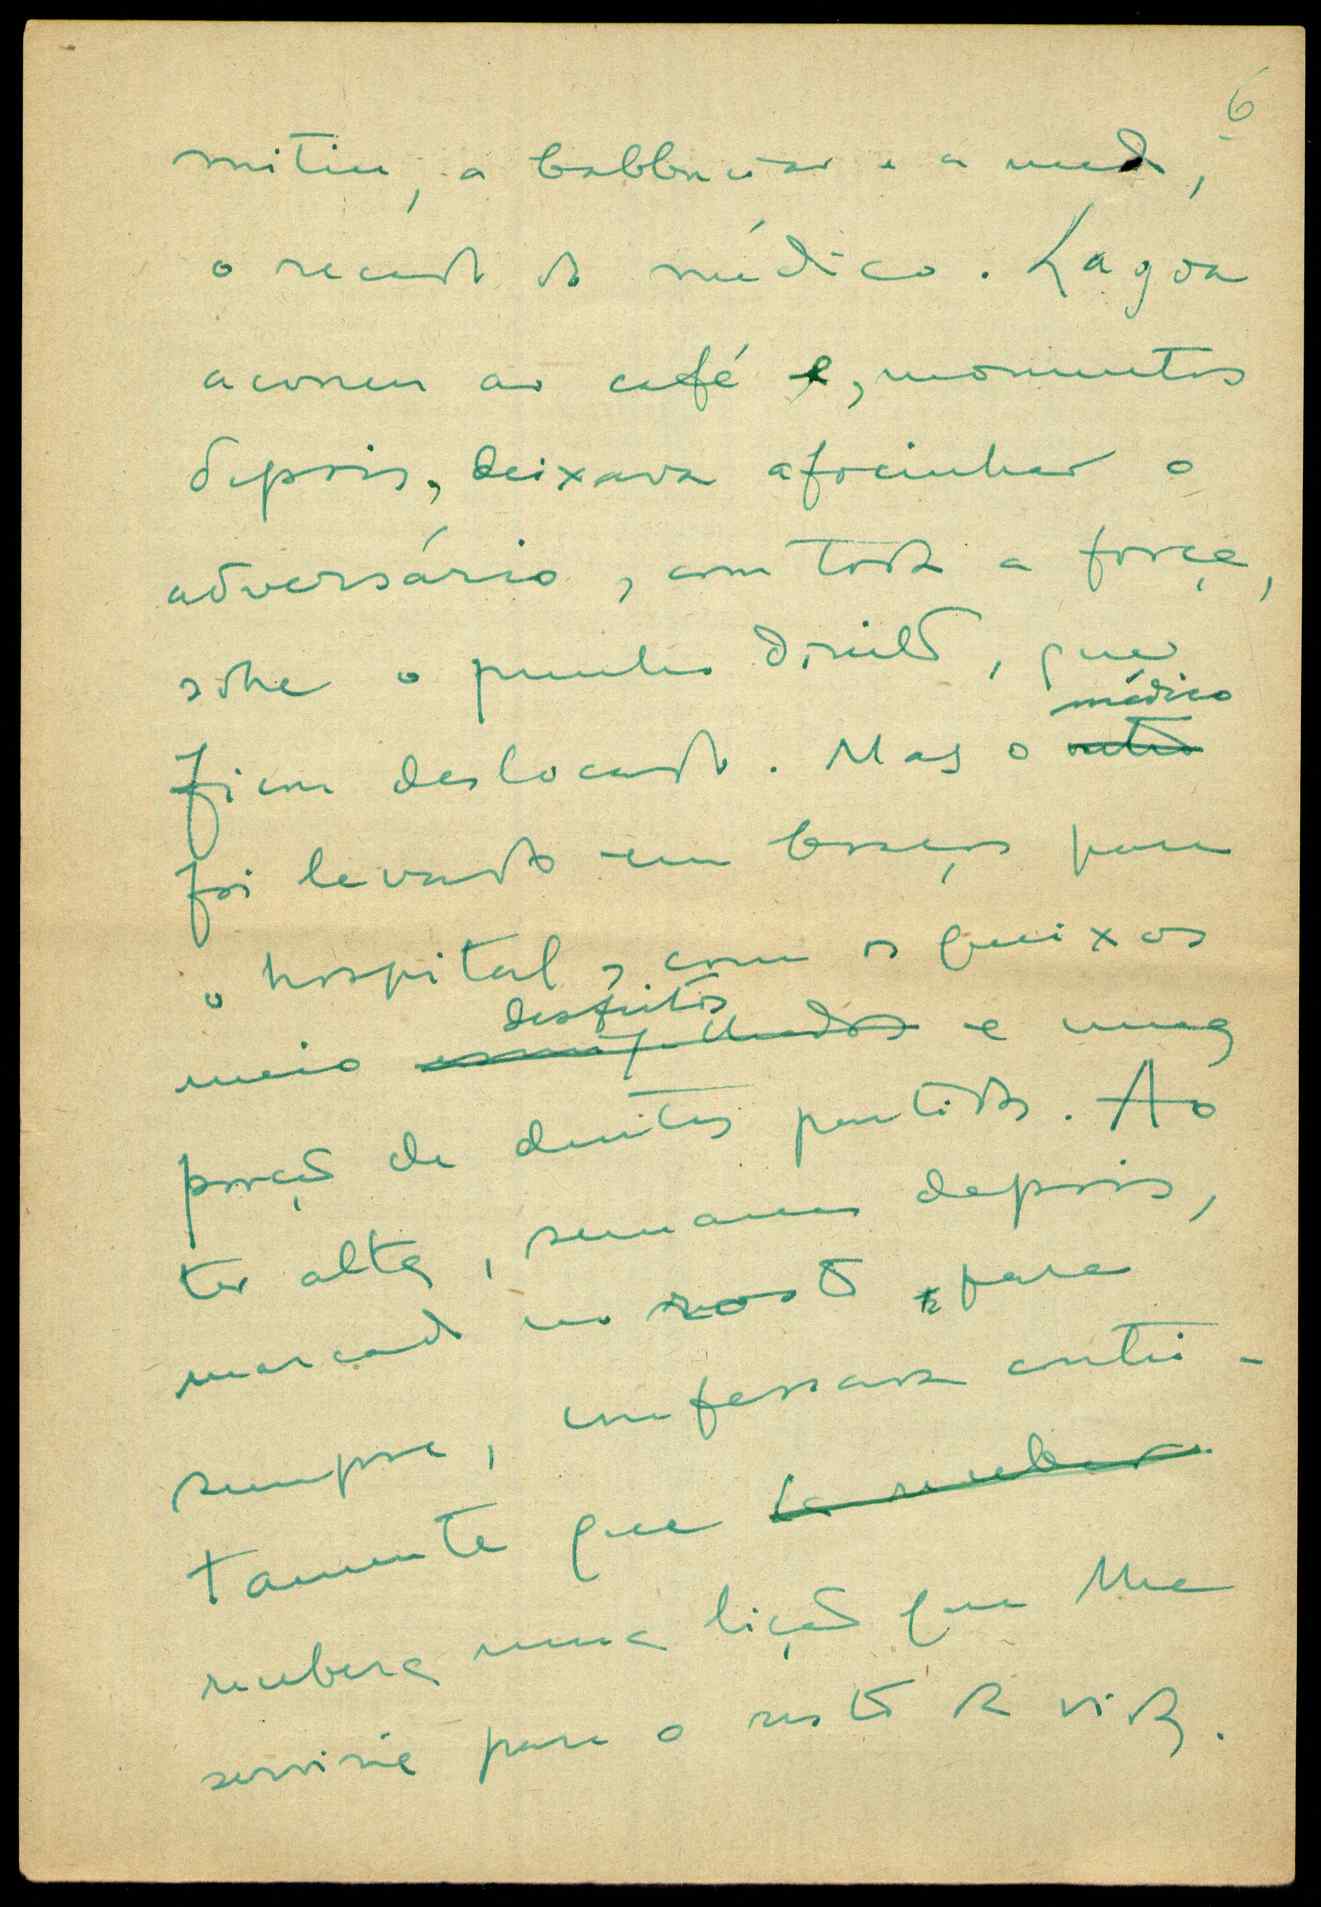 6
mitiu, a balbuciar e a medo,
o recado do médico. Lagoa
acorreu ao café e, momentos
depois, deixava afocinhar o
adversário, com toda a força,
sobre o punho direito, que
ficou deslocado. Mas o
médico
outro
foi levado em braços para
o hospital, com os queixos
desfeitos
meio esmigalhados e uma
porção de dentes partidos. Ao
ter alta, semanas depois,
marcado no rosto para
sempre, confessava contri-
tamente que recebera
recebera uma lição que lhe
serviria para o resto da vida.